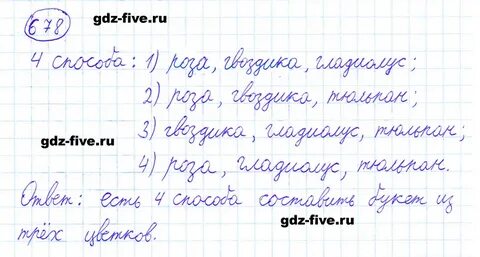 gdz-five.ru
678
4 способа: 1) роза, гвоздика, гладиолус;
gdz-five.ru
2) роза, гвоздика, тюльпан;
gdz-five.ru
3) гвоздика, гладиолус, тюльпан;
4) роза, гладиолус, тюльпан.
Ответ: есть 4 способа составить букет из
gdz-five.ru
трёх цветков.